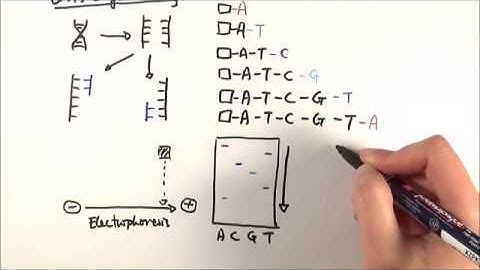 A
A-T
A-T-C
A-T-C-G
A-T-C-G-T
A-T-C-G-T-A
- Electrophoresis +
A C G T